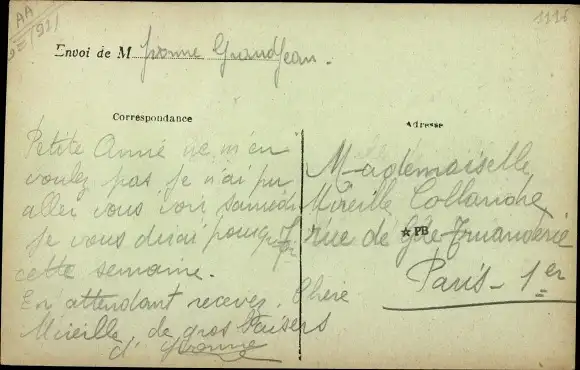 AA
1116
Envoi de M Yvonne Grandjean.
Correspondance
Adresse
Petite Amie ne m'en
voulez pas je n'ai pu
aller vous voir samedi
je vous dirai pourquoi
cette semaine.
En attendant recevez, Chère
Mireille, de gros baisers
d'Yvonne
Mademoiselle
Mireille Collanche
7, rue de Gde Truanderie
PB
Paris - 1er